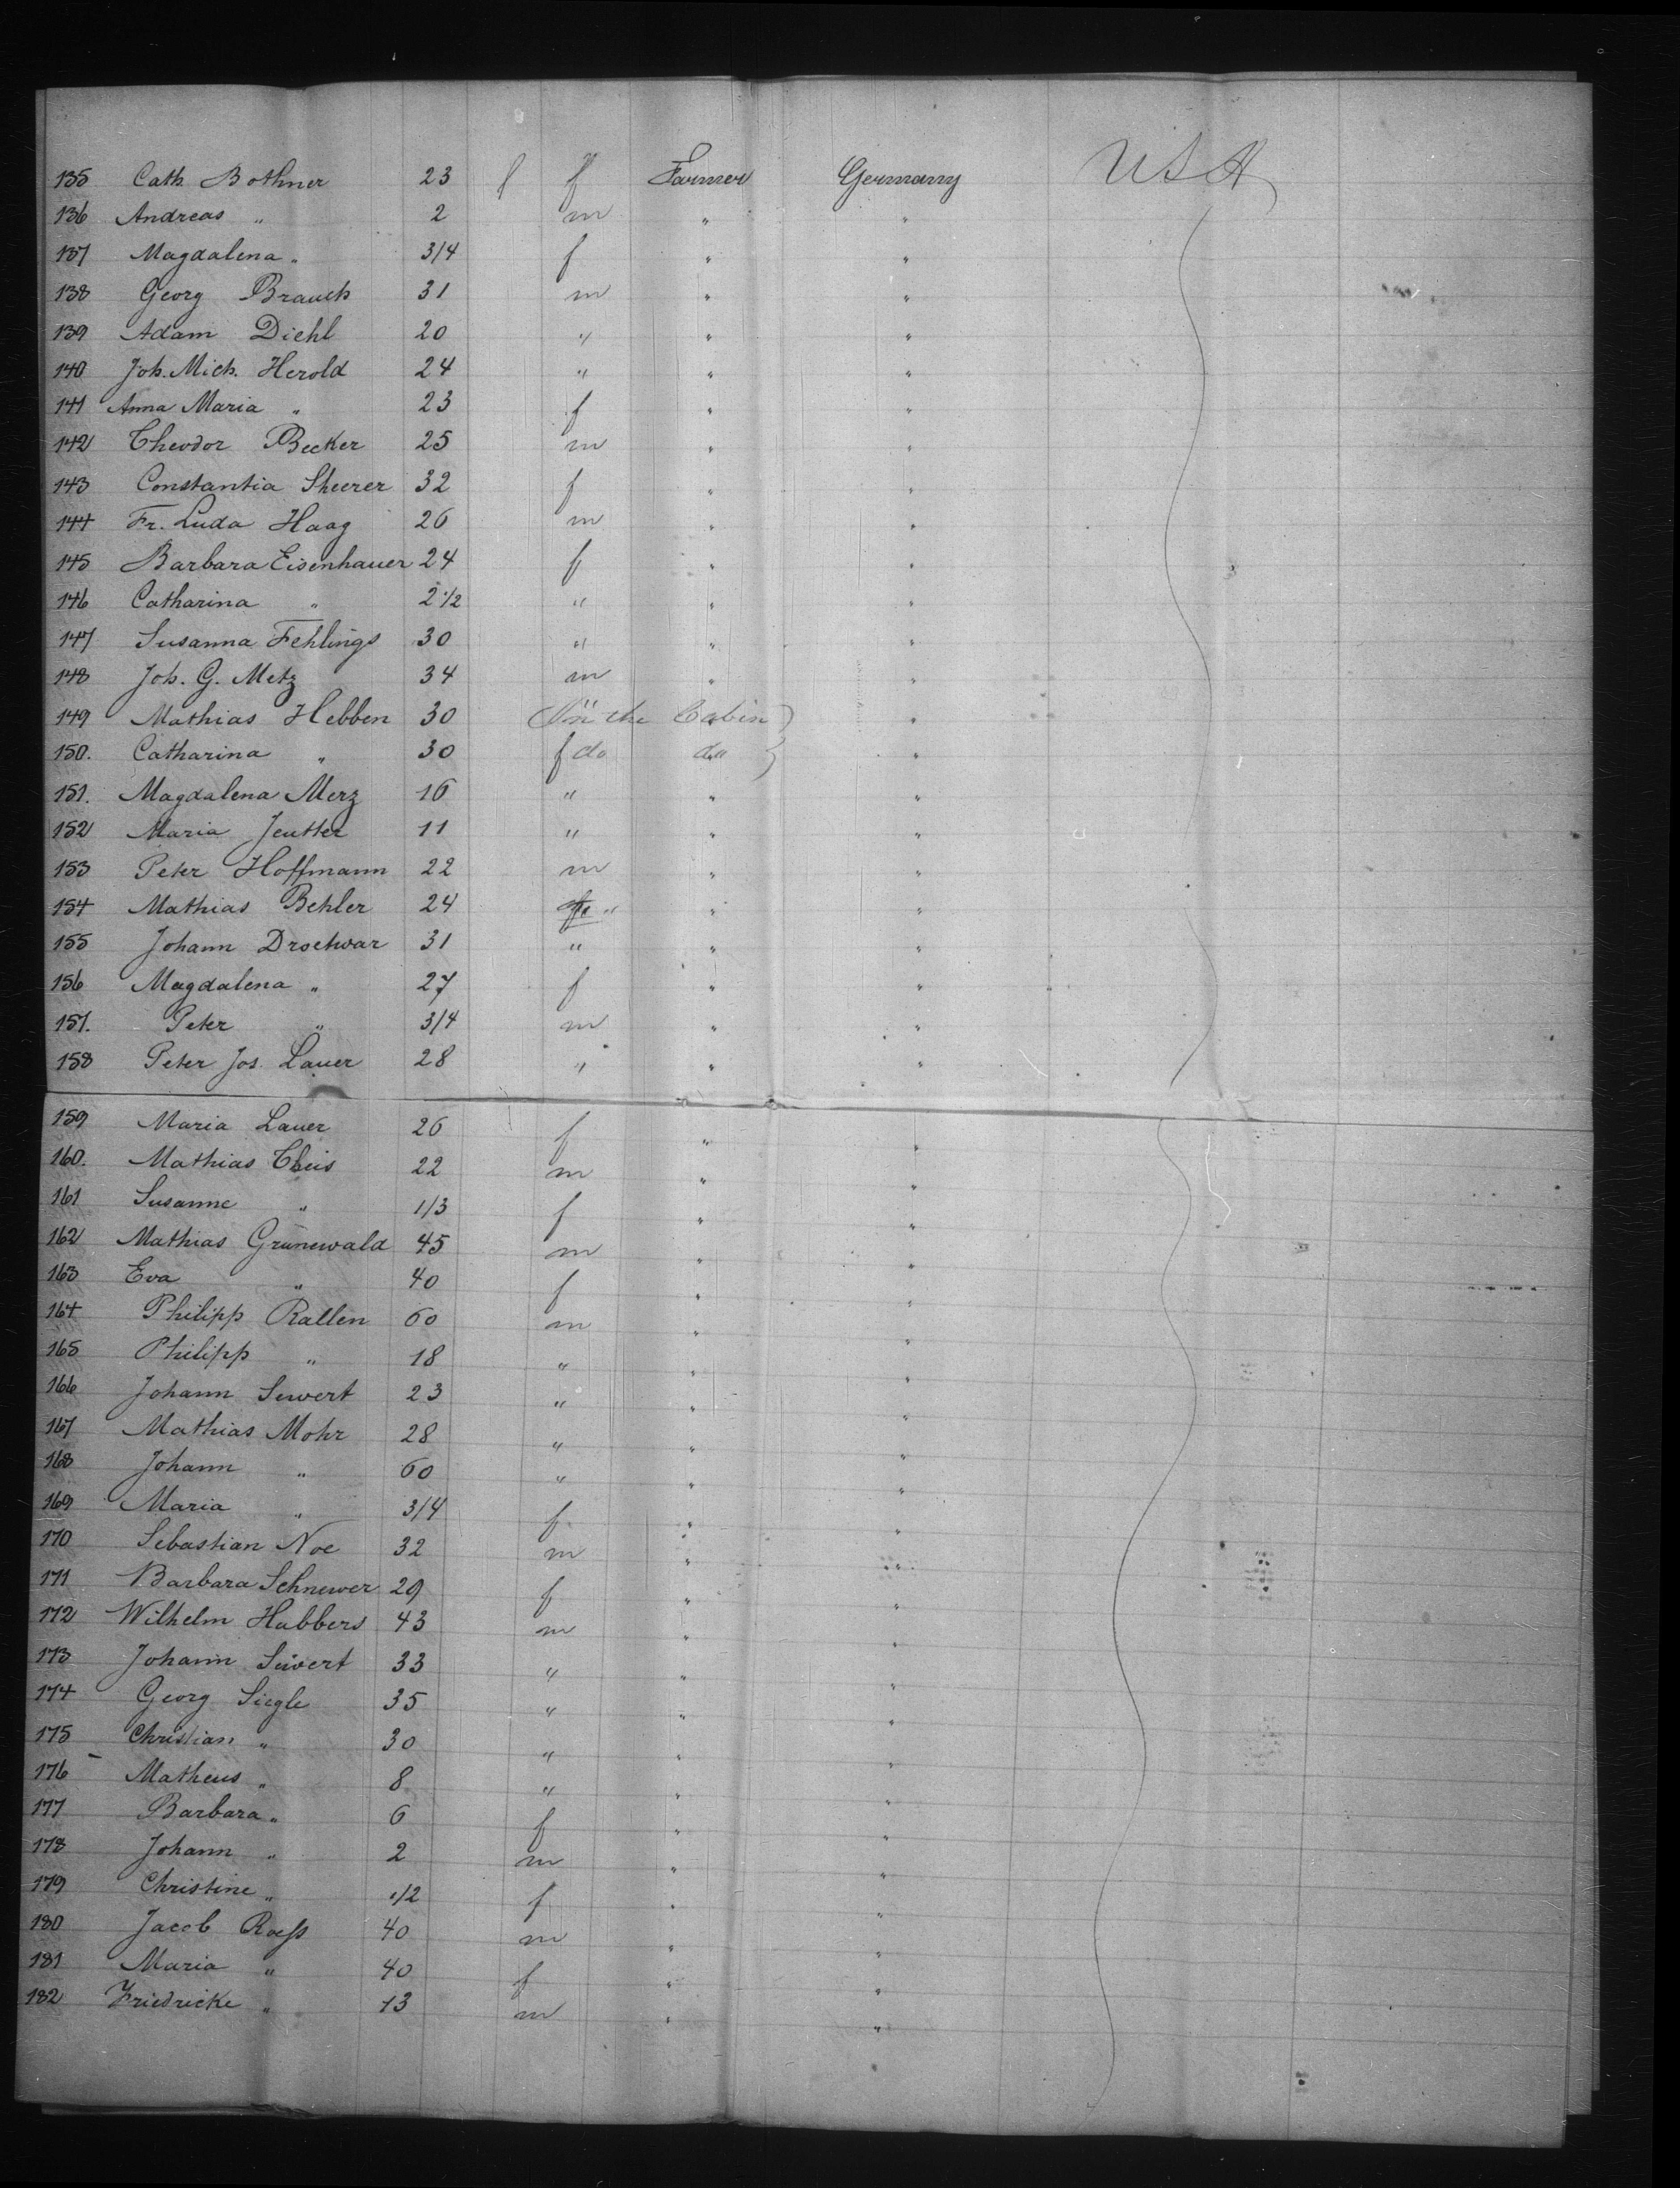 135 Cath Bothner 23 f f Farmer Germany USA
136 Andreas " 2 m " "
137 Magdalena " 3/4 f " "
138 Georg Brauch 31 m " "
139 Adam Diehl 20 " " "
140 Joh. Mich. Herold 24 " " "
141 Anna Maria " 23 f " "
142 Theodor Becker 25 m " "
143 Constantia Sheerer 32 f " "
144 Fr. Luda Haag 26 m " "
145 Barbara Eisenhauer 24 f " "
146 Catharina " 2 1/2 " " "
147 Susanna Fehlings 30 " " "
148 Joh. G. Metz 34 m " "
149 Mathias Hebben 30 (In the Cabin) "
150. Catharina " 30 f do do } "
151. Magdalena Merz 16 " " "
152 Maria Jeutter 11 " " "
153 Peter Hoffmann 22 m " "
154 Mathias Behler 24 " " "
155 Johann Droetwar 31 " " "
156 Magdalena " 27 f " "
157. Peter " 3/4 m " "
158 Peter Jos. Lauer 28 " " "
159 Maria Lauer 26 f " "
160. Mathias Theis 22 m " "
161 Susanne " 1/3 f " "
162 Mathias Grünewald 45 m " "
163 Eva " 40 f " "
164 Philipp Rallen 60 m " "
165 Philipp " 18 " " "
166 Johann Seiwert 23 " " "
167 Mathias Mohr 28 " " "
168 Johann " 60 " " "
169 Maria " 3/4 f " "
170 Sebastian Noe 32 m " "
171 Barbara Schnewer 29 f " "
172 Wilhelm Habbers 43 m " "
173 Johann Seiwert 33 " " "
174 Georg Siegle 35 " " "
175 Christian " 30 " " "
176 Matheus " 8 " " "
177 Barbara " 6 f " "
178 Johann " 2 m " "
179 Christine " 1/2 f " "
180 Jacob Roeß 40 m " "
181 Maria " 40 f " "
182 Friedricke " 13 m " "